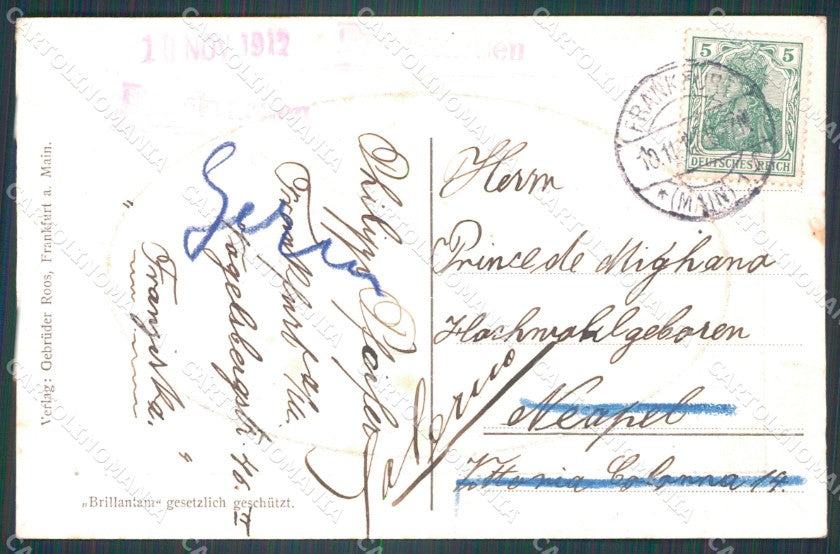 10 NOV 1912
5 5
DEUTSCHES REICH
FRANKFURT
10.11.
* (MAIN) 1
Herrn
Principe de Mighano
Hochwohlgeboren
Neapel
Vittoria Colonna 14.
Philipp Pfeifer
Frankfurt a/M.
46 III
" Franziska. "
Verlag: Gebrüder Roos, Frankfurt a. Main.
„Brillantam“ gesetzlich geschützt.
CARTOLINOMANIA